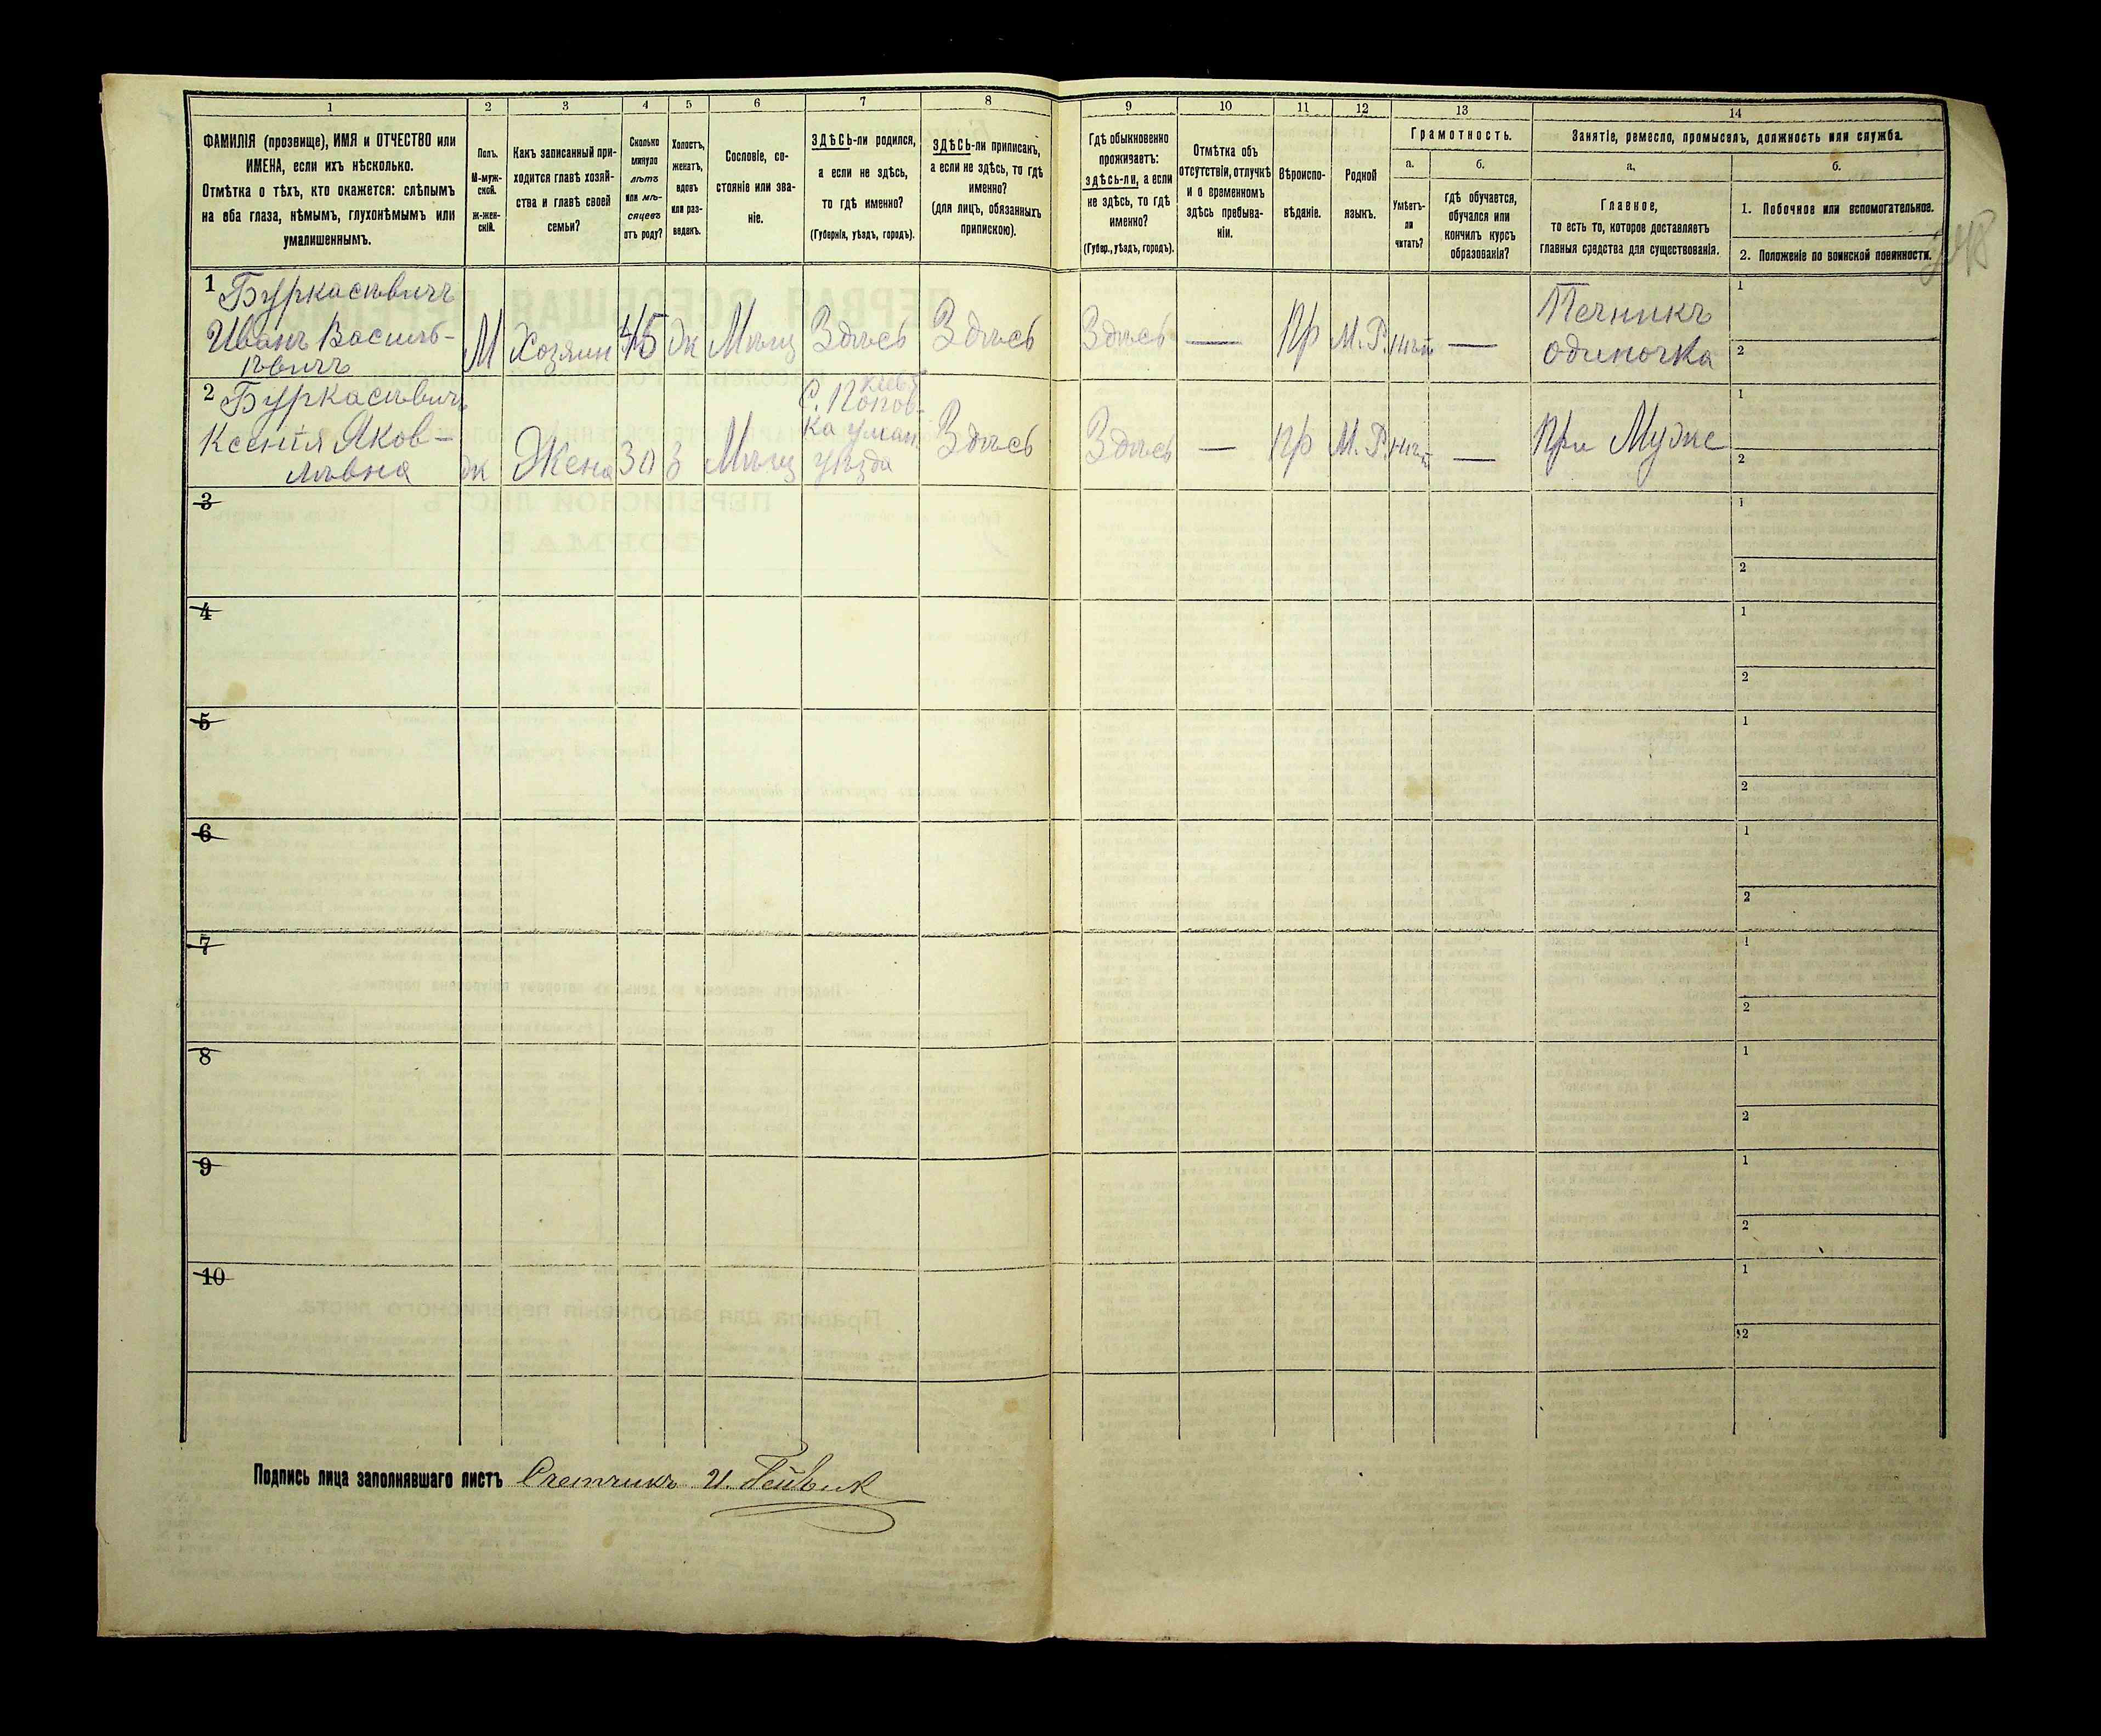 1
2
3
4
5
6
7
8
9
10
11
12
13
14
ФАМИЛІЯ (прозвище), ИМЯ и ОТЧЕСТВО или
ИМЕНА, если ихъ нѣсколько.
Отмѣтка о тѣхъ, кто окажется: слѣпымъ
на оба глаза, нѣмымъ, глухонѣмымъ или
умалишеннымъ.
Полъ.
М-муж-
ской.
Ж-жен-
скій.
Какъ записанный при-
ходится главѣ хозяй-
ства и главѣ своей
семьи?
Сколько
минуло
лѣтъ
или мѣ-
сяцевъ
отъ роду?
Холостъ,
женатъ,
вдовъ
или раз-
веденъ.
Сословіе, со-
стояніе или зва-
ніе.
ЗДѢСЬ-ли родился,
а если не здѣсь,
то гдѣ именно?
(Губернія, уѣздъ, городъ).
ЗДѢСЬ-ли приписанъ,
а если не здѣсь, то гдѣ
именно?
(для лицъ, обязанныхъ
припискою).
Гдѣ обыкновенно
проживаетъ:
здѣсь-ли, а если
не здѣсь, то гдѣ
именно?
(Губер., уѣздъ, городъ).
Отмѣтка объ
отсутствіи, отлучкѣ
и о временномъ
здѣсь пребыва-
ніи.
Вѣроиспо-
вѣданіе.
Родной
языкъ.
Грамотность.
а.
Умѣетъ-
ли
читать?
б.
гдѣ обучается,
обучался или
кончилъ курсъ
образованія?
Занятіе, ремесло, промыселъ, должность или служба.
а,
Главное,
то есть то, которое доставляетъ
главныя средства для существованія.
б.
1. Побочное или вспомогательное.
2. Положеніе по воинской повинности.
1 Буркасѣвичъ
Иванъ Василь-
ѣвичъ
М
Хозяин
45
ж
Мѣщ
Здѣсь
Здѣсь
Здѣсь
—
Пр
М. Р.
нѣт
—
Печникъ
одиночка
1
2
2 Буркасѣвичъ
Ксенія Яков-
лѣвна
ж
Жена
30
З
Мѣщ
Кіев
С. Попов-
ка уман.
уѣзда
Здѣсь
Здѣсь
—
Пр
М. Р.
нѣт
—
При Муже
1
2
3
1
2
4
1
2
5
1
2
6
1
2
7
1
2
8
1
2
9
1
2
10
1
2
Подпись лица заполнявшаго листъ Счетчикъ И.